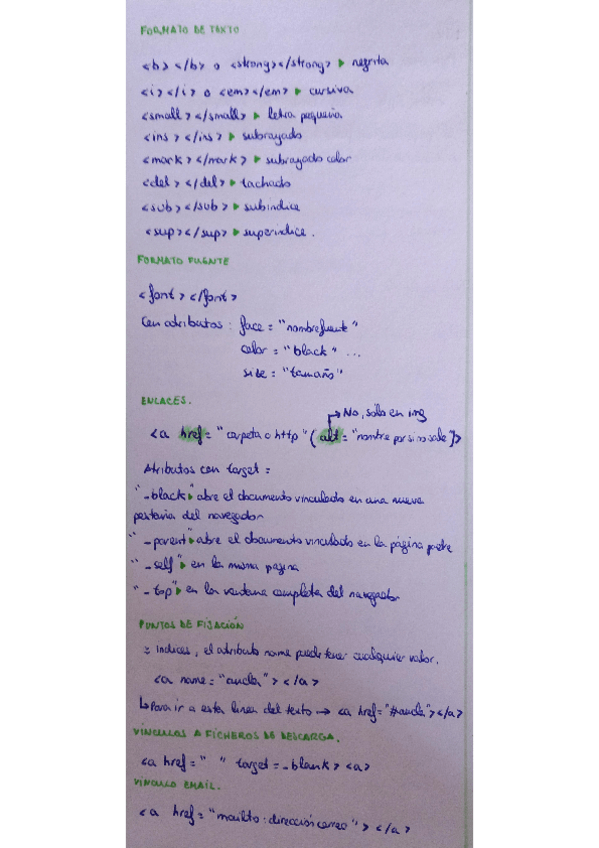 FORMATO DE TEXTO
<b> </b> o <strong></strong> ▶ negrita
<i></i> o <em></em> ▶ cursiva
<small></small> ▶ letra pequeña
<ins></ins> ▶ subrayado
<mark></mark> ▶ subrayado color
<del></del> ▶ tachado
<sub></sub> ▶ subindice
<sup></sup> ▶ superindice.
FORMATO FUENTE
<font></font>
Con atributos: face = "nombrefuente"
color = "black" ...
size = "tamaño"
ENLACES.
No, solo en img
<a href = "carpeta o http" (alt = "nombre por si no sale")>
Atributos con target =
"_black" ▶ abre el documento vinculado en una nueva
pestaña del navegador
"_parent" ▶ abre el documento vinculado en la página padre
"_self" ▶ en la misma pagina
"_top" ▶ en la ventana completa del navegador
PUNTOS DE FIJACIÓN
= Indices, el atributo name puede tener cualquier valor.
<a name = "ancla"></a>
↳ Para ir a esta linea del texto → <a href="#ancla"></a>
VÍNCULOS A FICHEROS DE DESCARGA.
<a href = " " target = _blank> <a>
VINCULO EMAIL.
<a href = "mailto: dirección correo"> </a>